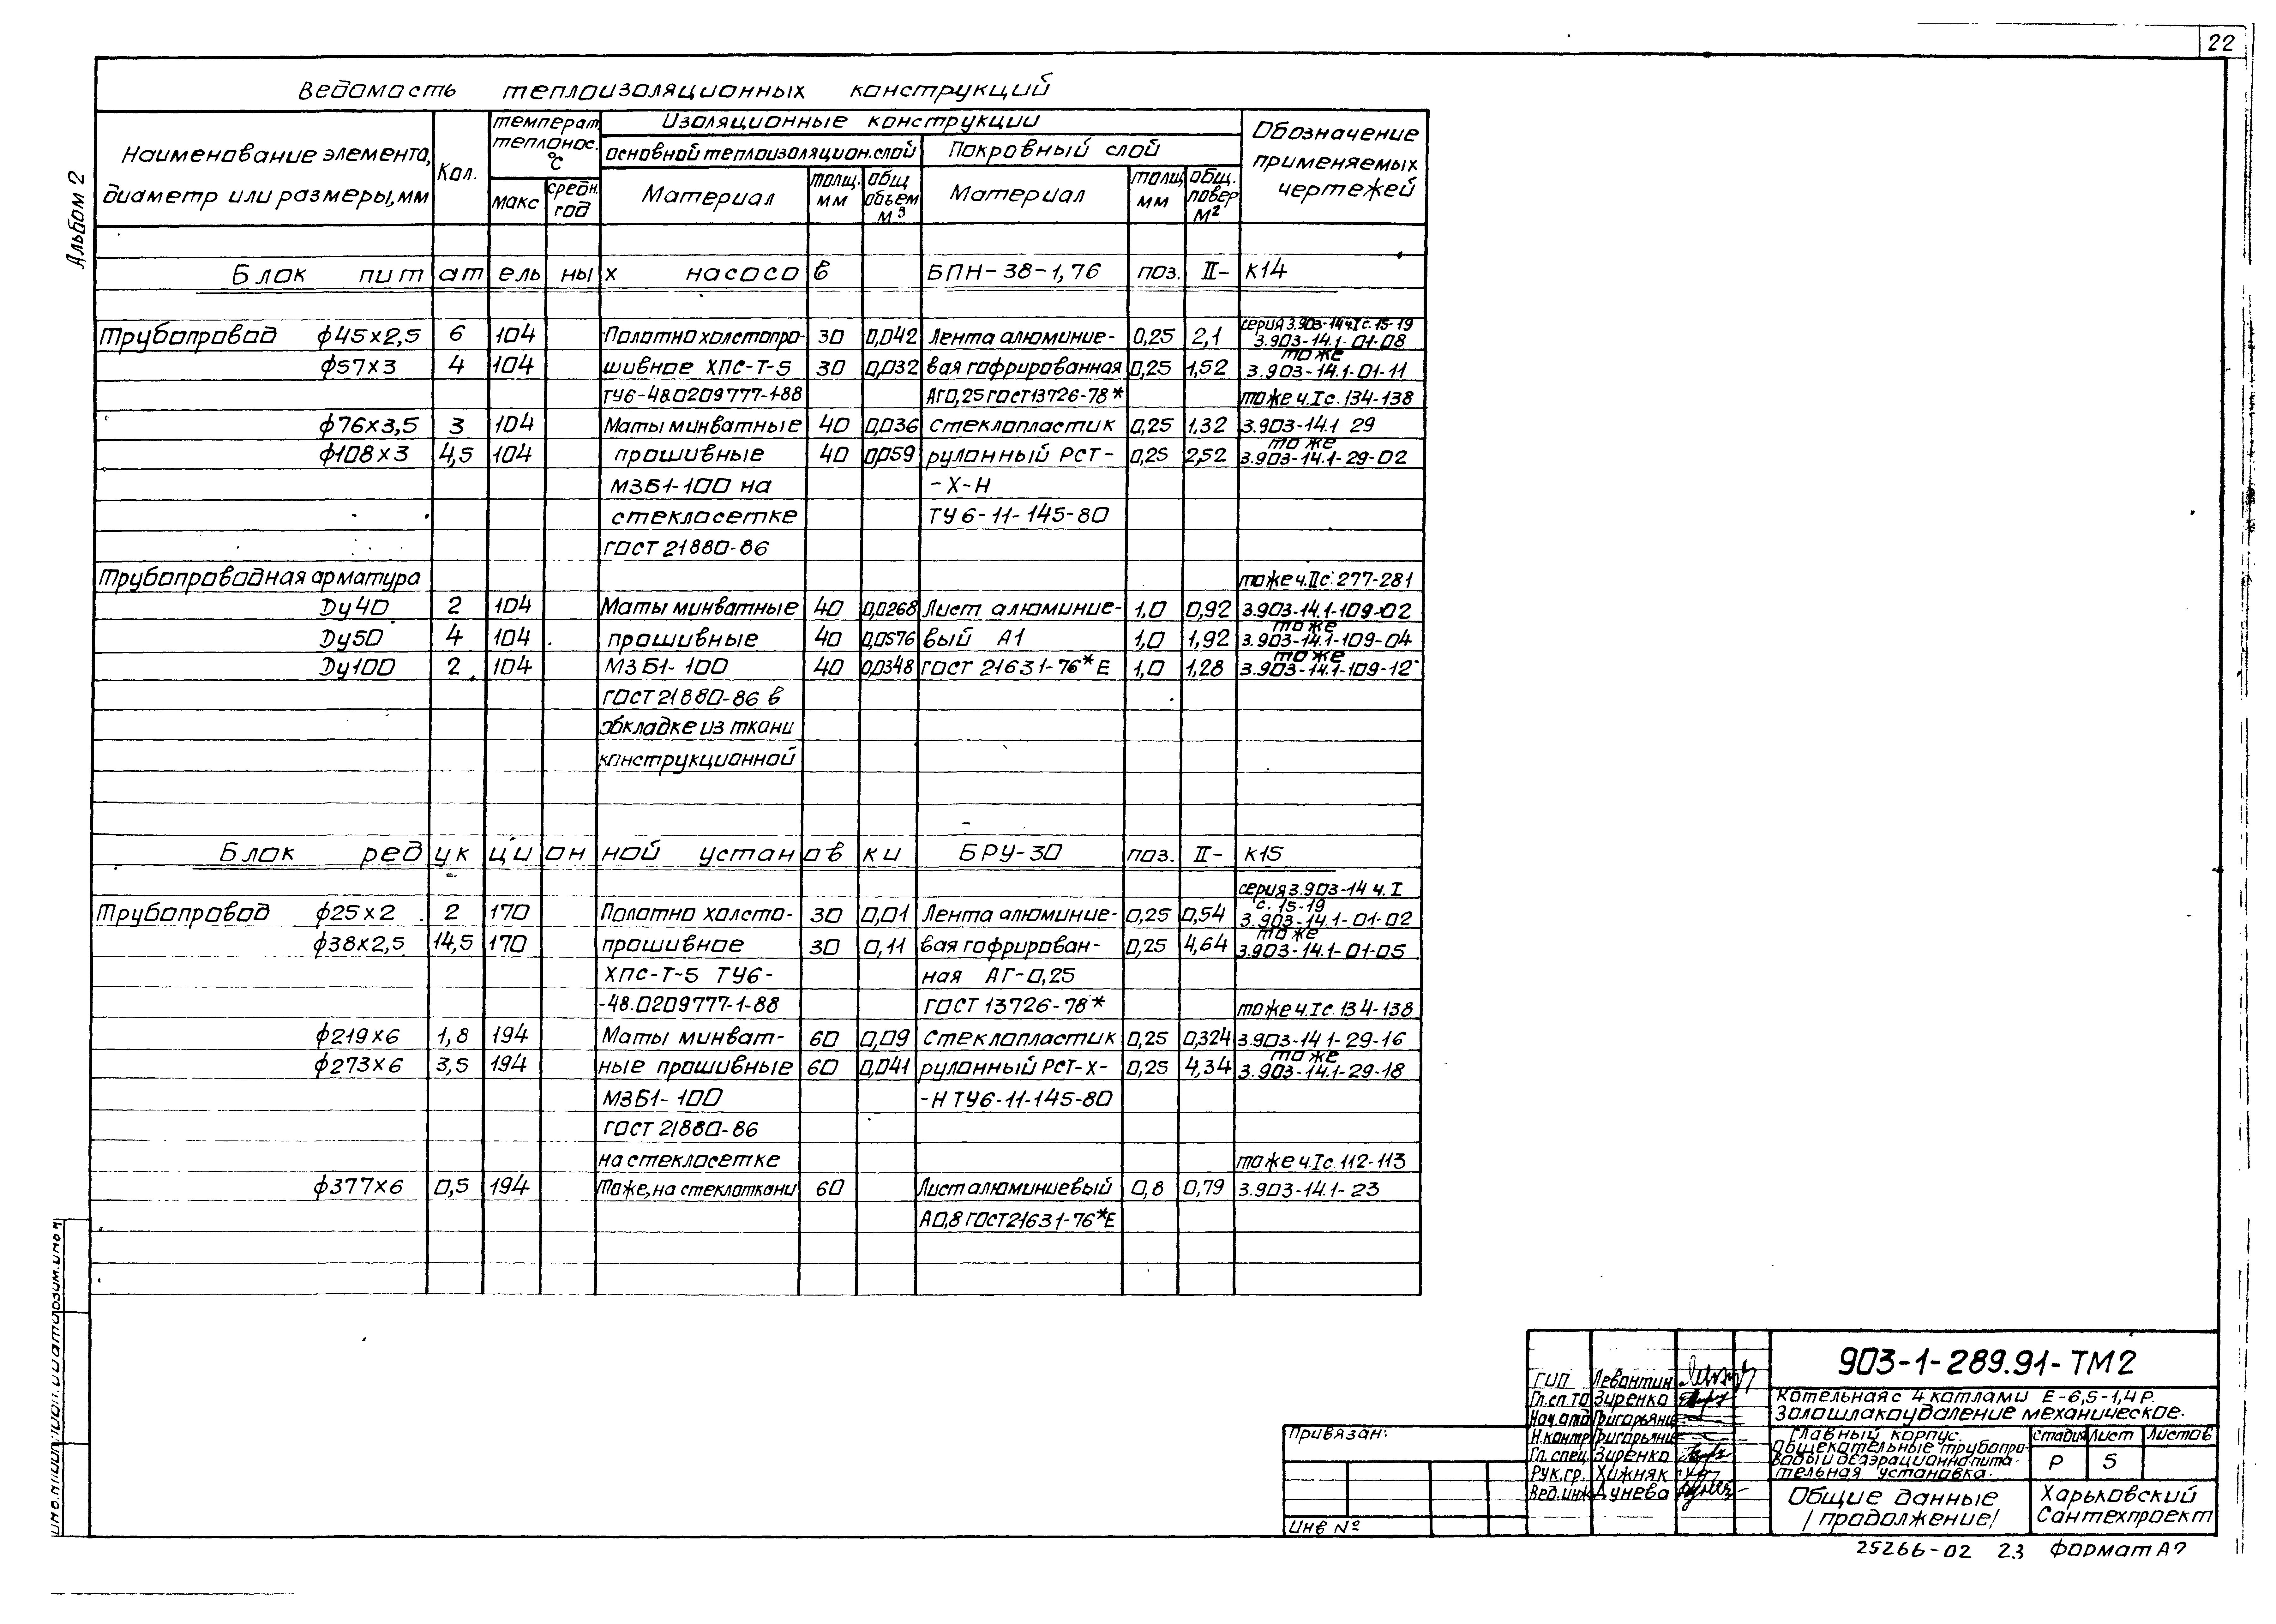 22
Альбом 2
Ведомость теплоизоляционных конструкций
Наименование элемента, диаметр или размеры, мм
Кол.
температ. теплонос. °С
макс
средн. год
Изоляционные конструкции
основной теплоизоляцион. слой
Покровный слой
Материал
толщ. мм
общ. объем м³
Материал
толщ. мм
общ. повер м²
Обозначение применяемых чертежей
Блок питательных насосов БПН-38-1,76 поз. II-К14
серия 3.903-14 ч I с. 15-19
Трубопровод ф45х2,5 6 104 Полотно холстопро- 30 0,042 Лента алюминие- 0,25 2,1 3.903-14.1-01-08
то же
ф57х3 4 104 шивное ХПС-Т-5 30 0,032 вая гофрированная 0,25 1,52 3.903-14.1-01-11
ТУ6-48.0209777-1-88 АГ0,25 ГОСТ13726-78* то же ч. I с. 134-138
ф76х3,5 3 104 Маты минватные 40 0,036 стеклопластик 0,25 1,32 3.903-14.1 29
то же
ф108х3 4,5 104 прошивные 40 0,059 рулонный РСТ- 0,25 2,52 3.903-14.1-29-02
МЗБ1-100 на -Х-Н
стеклосетке ТУ 6-11-145-80
ГОСТ 21880-86
Трубопроводная арматура то же ч. II с. 277-281
Ду40 2 104 Маты минватные 40 0,0268 Лист алюминие- 1,0 0,92 3.903-14.1-109-02
то же
Ду50 4 104 прошивные 40 0,0576 вый А1 1,0 1,92 3.903-14.1-109-04
то же
Ду100 2 104 МЗБ1-100 40 0,0348 ГОСТ 21631-76*Е 1,0 1,28 3.903-14.1-109-12
ГОСТ 21880-86 в
обкладке из ткани
конструкционной
Блок редукционной установки БРУ-30 поз. II-К15
серия 3.903-14 ч. I
с. 15-19
Трубопровод ф25х2 2 170 Полотно холсто- 30 0,01 Лента алюминие- 0,25 0,54 3.903-14.1-01-02
то же
ф38х2,5 14,5 170 прошивное 30 0,11 вая гофрирован- 0,25 4,64 3.903-14.1-01-05
ХПС-Т-5 ТУ6- ная АГ-0,25
-48.0209777-1-88 ГОСТ 13726-78* то же ч. I с. 134-138
ф219х6 1,8 194 Маты минват- 60 0,09 Стеклопластик 0,25 0,324 3.903-14 1-29-16
то же
ф273х6 3,5 194 ные прошивные 60 0,041 рулонный РСТ-Х- 0,25 4,34 3.903-14.1-29-18
МЗБ1-100 -Н ТУ6-11-145-80
ГОСТ 21880-86
на стеклосетке то же ч. I с. 112-113
ф377х6 0,5 194 То же, на стеклоткани 60 Лист алюминиевый 0,8 0,79 3.903-14.1-23
А0,8 ГОСТ21631-76*Е
903-1-289.91-ТМ2
ГИП Левантин
Гл.сп.ТО Зиренко
Нач.отд Григорьянц
Н.контр Григорьянц
Гл.спец. Зиренко
Рук.гр. Хижняк
Вед.инж Дунева
Котельная с 4 котлами Е-6,5-1,4Р.
Золошлакоудаление механическое.
Главный корпус.
Общекотельные трубопро-
воды и деаэрационно пита-
тельная установка.
стадия Лист Листов
Р 5
Общие данные
/продолжение/
Харьковский
Сантехпроект
Привязан:
Инв №
25266-02 23 Формат А2